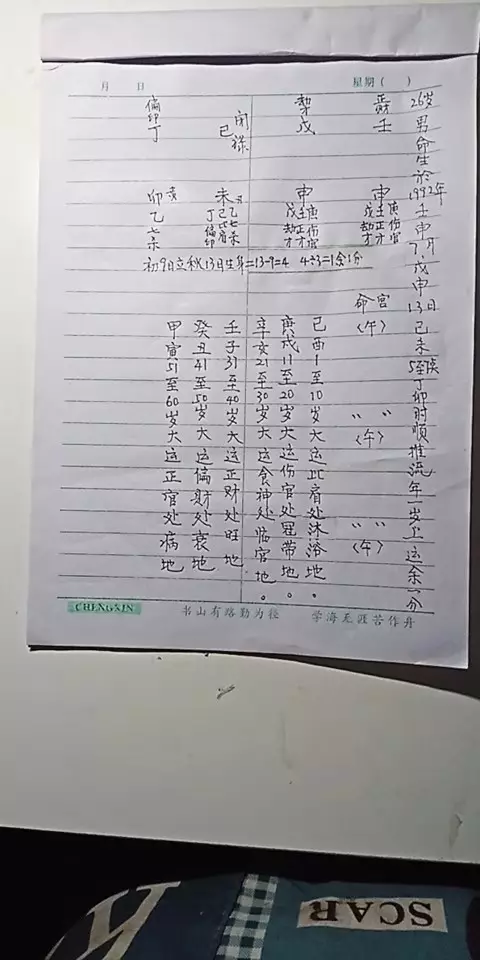 月 日
星期( )
26岁男命生於1992年壬申7月戊申13日己未5至7点丁卯时顺推流年一岁上运余一分
正财壬
申
戊壬庚
劫正伤
才才官
劫戊
申
戊壬庚
劫正伤
才才官
闭禄
己
未
丁己乙
偏比七
印肩杀
偏印丁
卯
乙
七杀
初9日立秋13日生男=13-9=4 4÷3=1余1分
命宫
(午)
〃 〃
(午)
〃 〃
(午)
己酉1至10岁大运比肩处沐浴地。
庚戌11至20岁大运伤官处冠带地。
辛亥21至30岁大运食神处临官地。
壬子31至40岁大运正财处旺地
癸丑41至50岁大运偏财处衰地
甲寅51至60岁大运正官处病地
CHENGXIN
书山有路勤为径 学海无涯苦作舟
SCAR